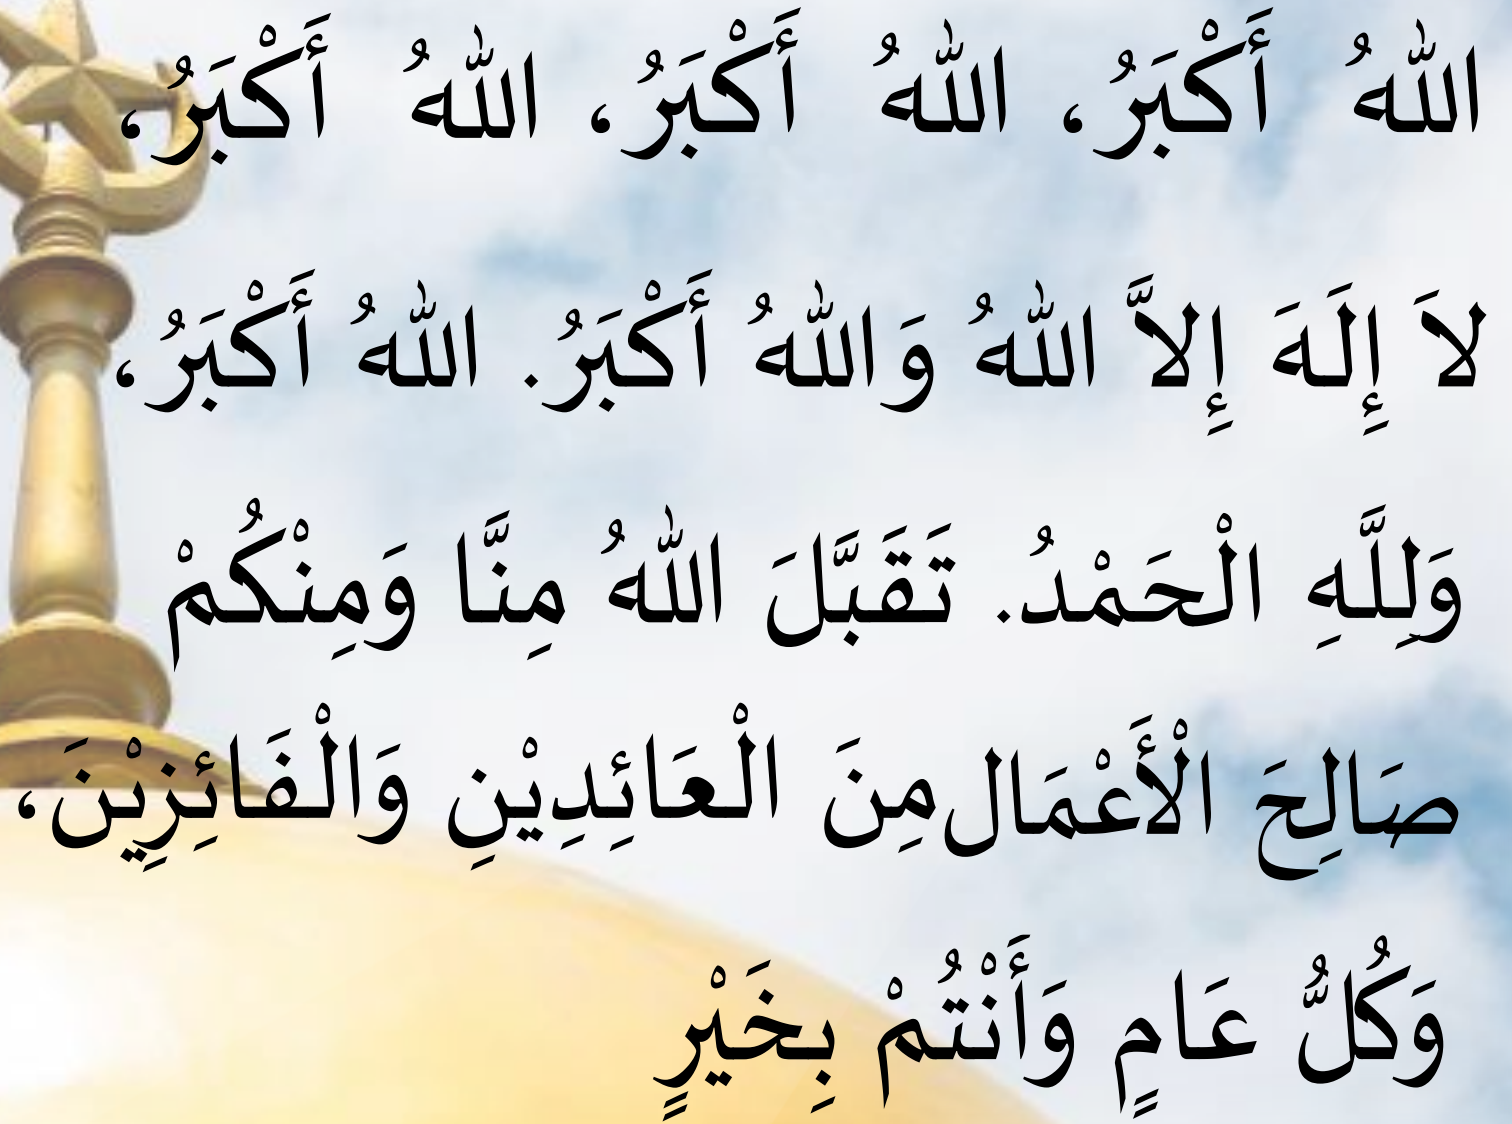 اللهُ أَكْبَرُ، اللهُ أَكْبَرُ، اللهُ أَكْبَرُ،
لاَ إِلَهَ إِلاَّ اللهُ وَاللهُ أَكْبَرُ. اللهُ أَكْبَرُ،
وَلِلَّهِ الْحَمْدُ. تَقَبَّلَ اللهُ مِنَّا وَمِنْكُمْ
صَالِحَ الْأَعْمَال مِنَ الْعَائِدِيْنِ وَالْفَائِزِيْنَ،
وَكُلُّ عَامٍ وَأَنْتُمْ بِخَيْرٍ